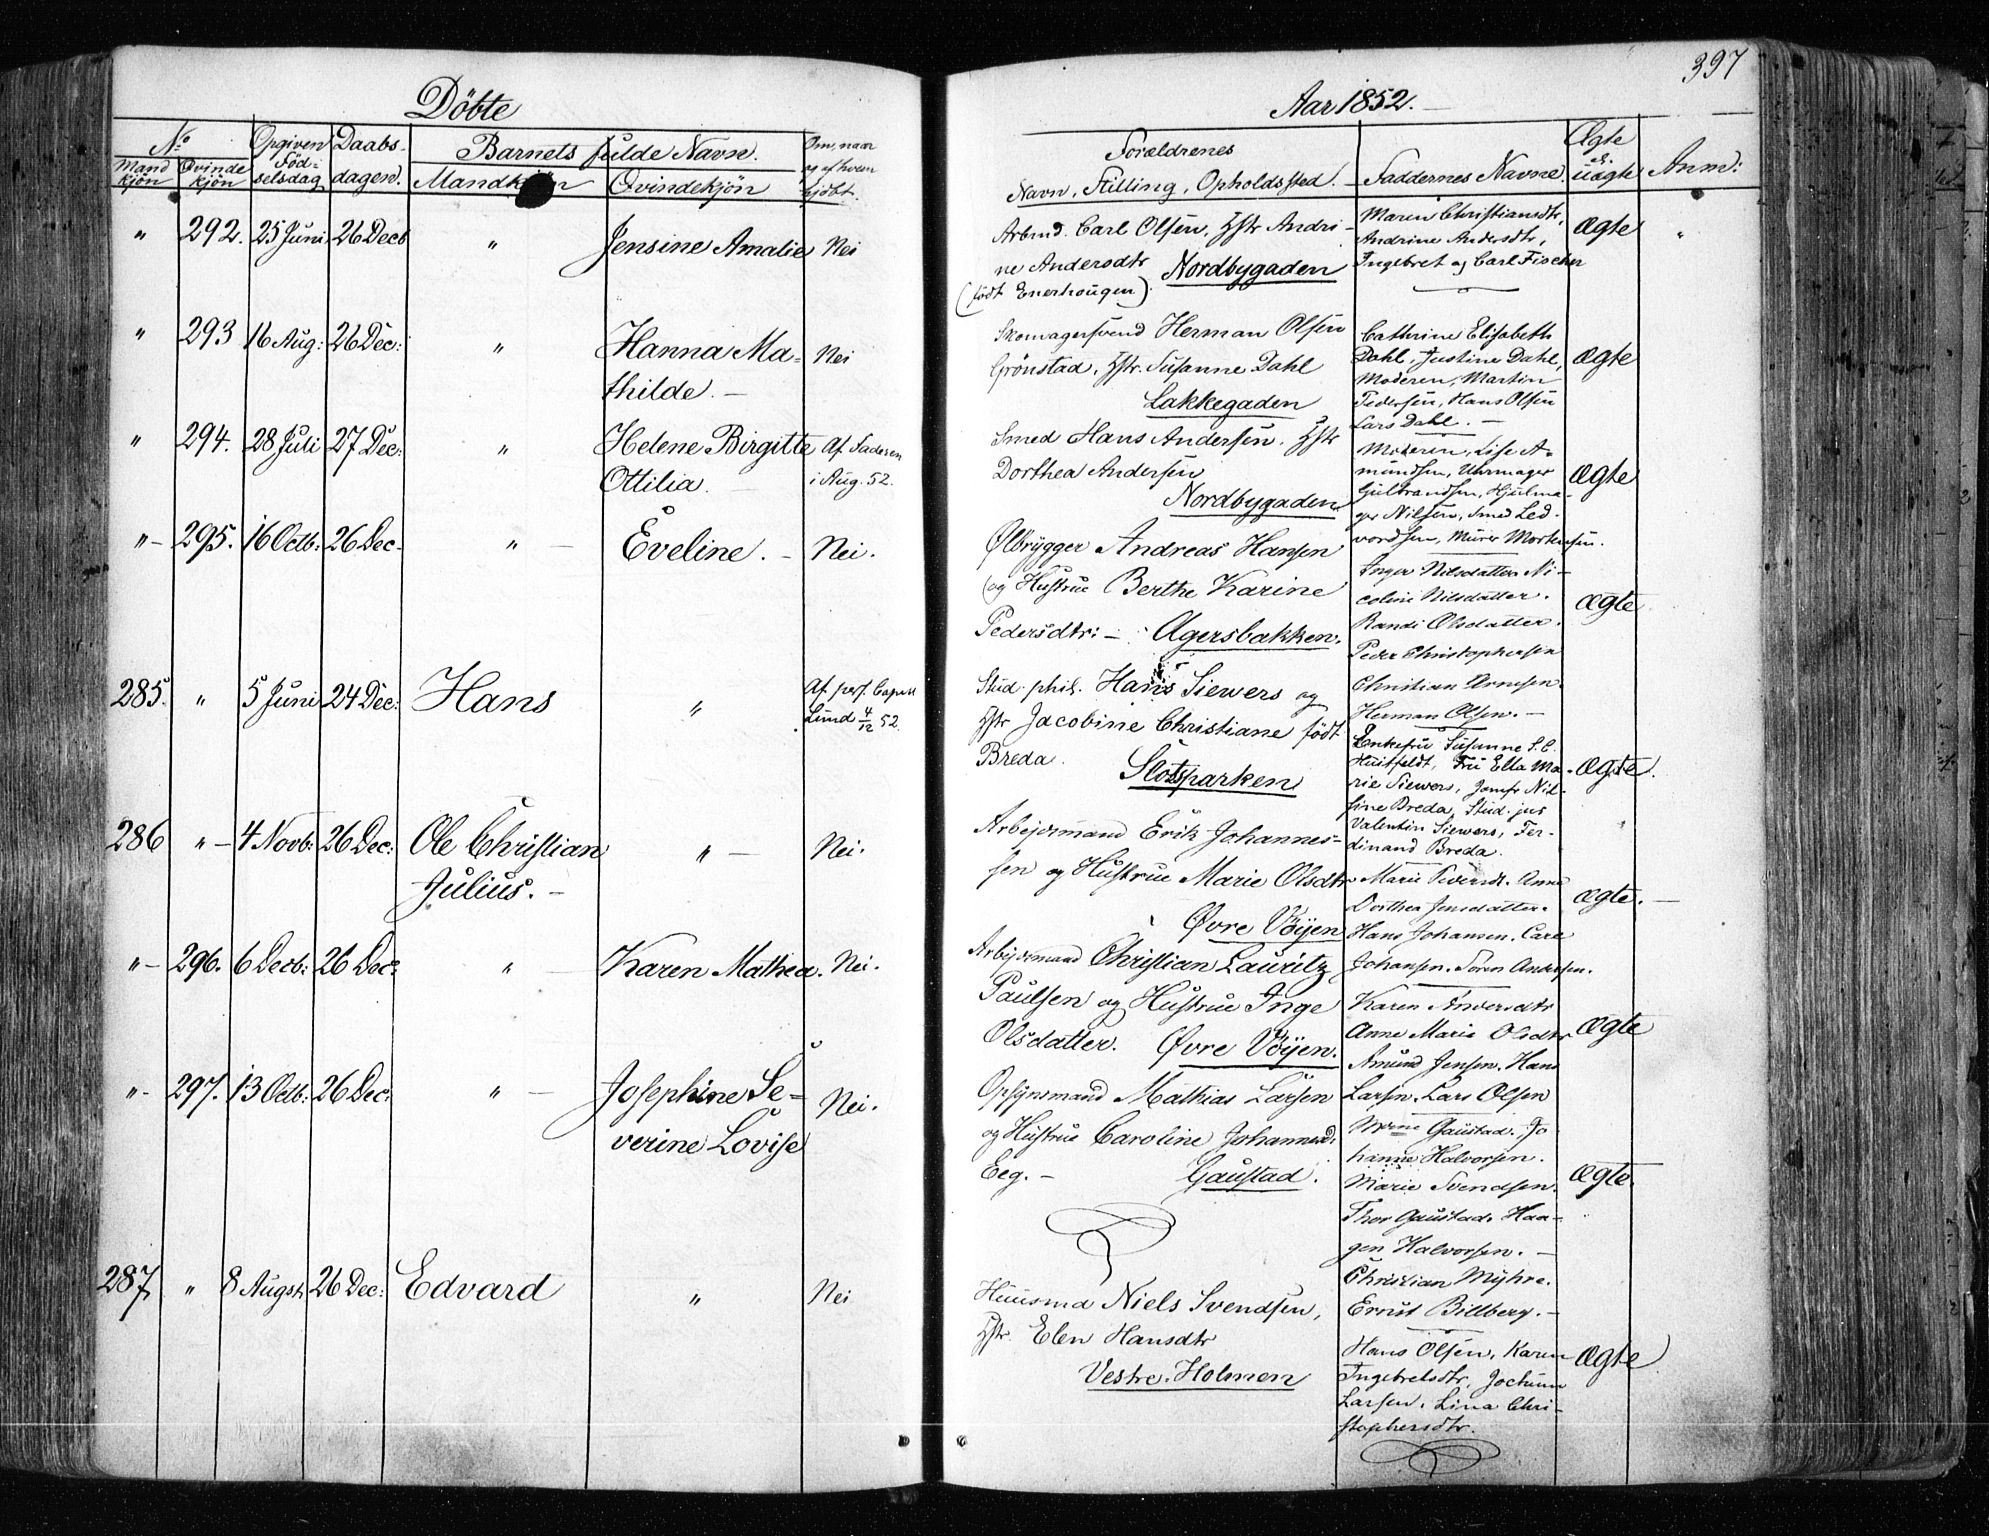 397
Döbte
Aar 1852.
No
Opgiven Fødselsdag
Daabsdagen.
Barnets fulde Navn.
Om, naar og af hvem hjdbt.
Mandkjön
Qvindekjön
Mandkjön
Qvindekjön
Forældrenes
Navn, Stilling, Opholdssted.
Faddernes Navne
Ægte el. uægte
Anm:
" 292. 25 Juni 26 Decb " Jensine Amalie Nei
Arbmd. Carl Olsen, Hstr Andri-
ne Andersdtr Nordbygaden
(født Enerhougen).
Maren Christiansdtr,
Andrine Andersdtr,
Ingebret og Carl Fischer
Ægte "
" 293 16 Aug: 26 Dec: " Hanna Ma-
thilde. —
Nei
Skomagersvend Herman Olsen
Grönstad, Hstr. Susanne Dahl
Lakkegaden
Cathrine Elisabeth
Dahl, Justine Dahl,
Moderen, Martin
Pedersen, Hans Olsen
Lars Dahl. —
Ægte
" 294. 28 Juli 27 Dec: " Helene Birgitte
Ottilia. —
Af Faderen
i Aug. 52.
Smed Hans Andersen. Hstr
Dorthea Andersen
Nordbygaden
Moderen, Lise A-
mundsen, Uhrmager
Gulbrandsen, Hjulma-
ger Nilsen, Smed Led-
vordsen, Murer Mortensen.
Ægte
" — 295. 16 Octb: 26 Dec — " — Eveline. — Nei.
Ølbrygger Andreas Hansen
og Hustrue Berthe Karine
Pedersdtr: — Agersbakken.
Inger Nilsdatter Ni-
coline Nilsdatter.
Randi Olsdatter.
Peder Christophersen
Christian Arnesen.
Herman Olsen. —
Ægte
285. " 5 Juni 24 Dec: Hans "
Af pers. Capell
Lund 4/12 52.
Stud. phil. Hans Siewers og
Hstr Jacobine Christiane född
Breda. Slotsparken
Enkefru Susanne S. C.
Huitfeldt, Fru Ella Ma-
rie Siewers, Jomfr Nil-
sine Breda, Stud. jur
Valentin Siewers, Fer-
dinand Breda.
Ægte.
286 " — 4 Novb: 26 Dec: Ole Christian
Julius. —
" — Nei.
Arbejdsmand Erik Johannes-
sen og Hustrue Marie Olsdtr
Øvre Vöyen
Marie Pedersdt. Anne
Dorthea Jensdatter.
Hans Johansen. Carl
Johansen. Sören Andersen.
Ægte. —
" — 296. 6 Decb: 26 Dec: " — Karen Mathea. Nei.
Arbejdsmand Christian Lauritz
Paulsen og Hustrue Inge
Olsdatter. Øvre Vöyen.
Karen Andersdtr
Anne Marie Olsdtr
Amund Jensen. Hans
Larsen. Lars Olsen
Ægte
" - 297. 13 Octb: 26 Dec: " — Josephine Se-
verine Lovise
Nei.
Opsynsmand Mathias Larsen
og Hustrue Caroline Johannesd:
Eeg. — Gaustad.
Gaustad. Jo
hanne Halvorsen.
Marie Svendsen.
Thor Gaustad. Haa-
gen Halvorsen. —
Christian Myhre.
Ernst Billberg. —
Ægte.
287, " 8 Augst, 26 Dec: Edvard " Nei
Huusmd Niels Svendsen,
Hstr. Elen Hansdtr
Vestre Holmen
Hans Olsen, Karen
Ingebretsdtr, Jochum
Larsen, Lina Chri-
stophersdtr.
Ægte